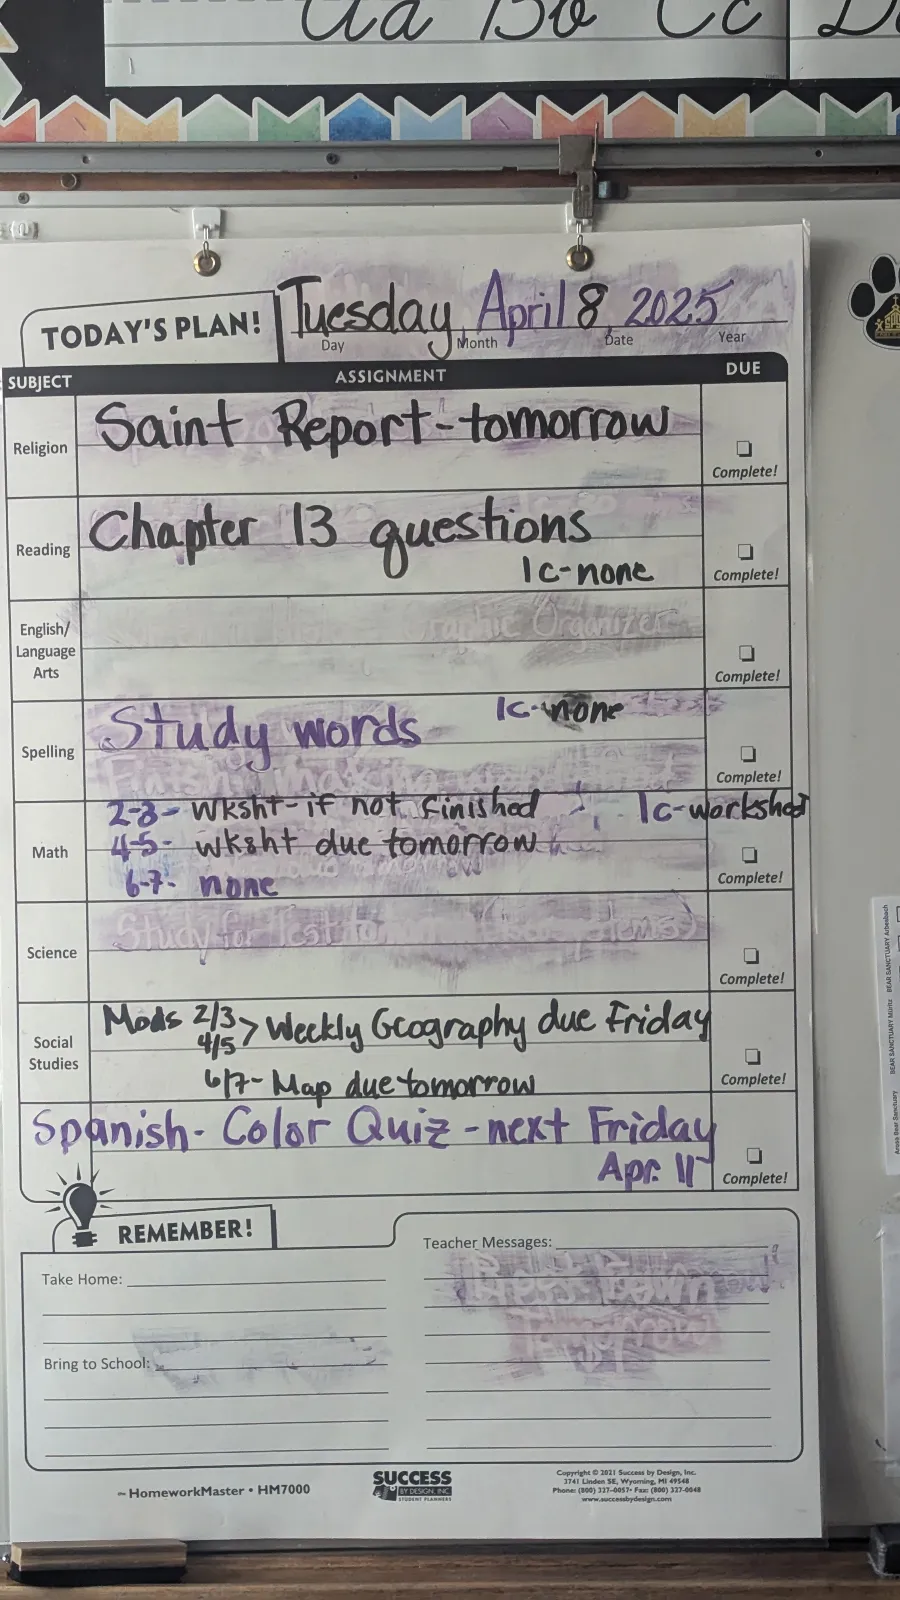 Aa Bb Cc D
TODAY'S PLAN! Tuesday, April 8, 2025
Day Month Date Year
SUBJECT ASSIGNMENT DUE
Religion Saint Report - tomorrow
Complete!
Reading Chapter 13 questions
1c - none
Complete!
English/
Language
Arts
Graphic Organizer
Complete!
Spelling Study words 1c - none
Complete!
Math
2-3 - wksht - if not finished 1c - workshed
4-5 - wksht due tomorrow
6-7 - none
Complete!
Science
Study for Test
Complete!
Social
Studies
Mods 2/3
4/5 > Weekly Geography due Friday
6/7 - Map due tomorrow
Complete!
Spanish - Color Quiz - next Friday
Apr. 11
Complete!
REMEMBER!
Take Home:
Bring to School:
Teacher Messages:
HomeworkMaster • HM7000
SUCCESS
BY DESIGN, INC.
STUDENT PLANNERS
Copyright © 2021 Success by Design, Inc.
3741 Linden SE, Wyoming, MI 49548
Phone: (800) 327-0057 • Fax: (800) 327-0048
www.successbydesign.com
BEAR SANCTUARY Arbesbach
BEAR SANCTUARY Müritz